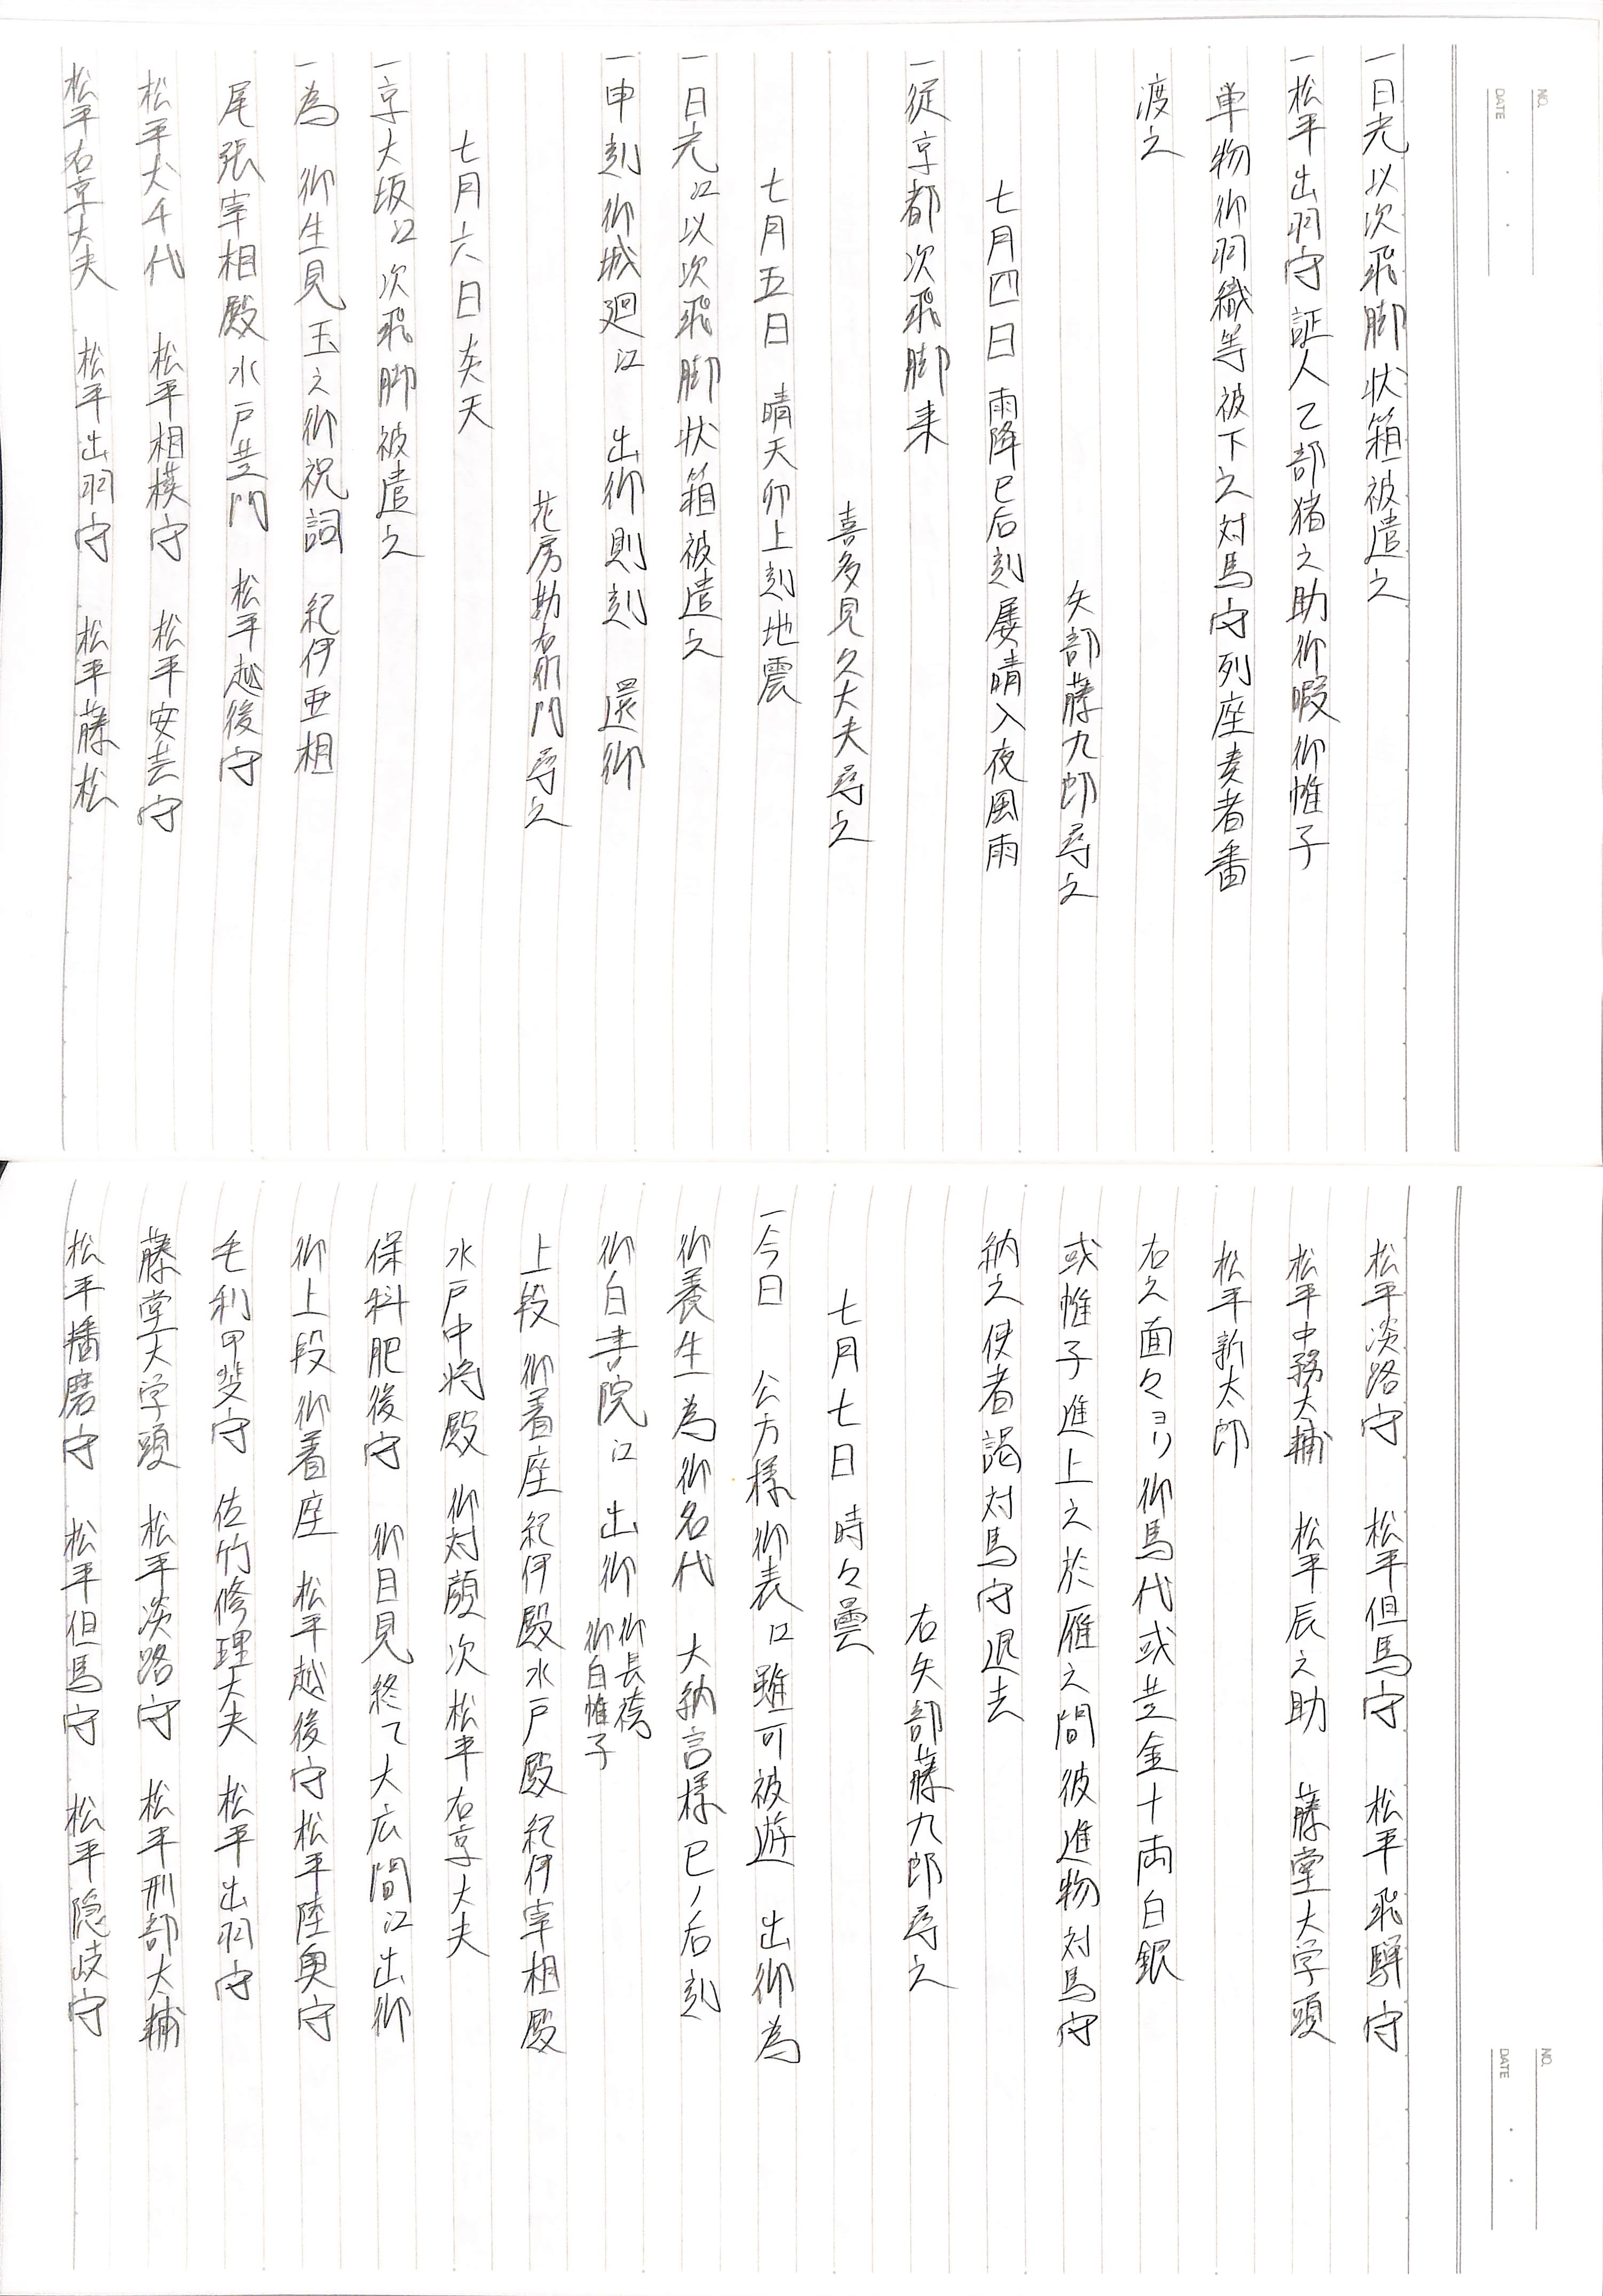 NO.
DATE
一日光以次飛脚状箱被遣之
一松平出羽守証人乙部猪之助御暇御帷子
単物御羽織等被下之対馬守列座奏者番
渡之
矢部藤九郎尋之
七月四日 雨降巳后刻属晴入夜風雨
一従京都次飛脚来
喜多見久大夫尋之
七月五日 晴天卯上刻地震
一日光江以次飛脚状箱被遣之
一申刻御城廻江 出御則刻 還御
花房勘右衛門尋之
七月六日炎天
一京大坂江次飛脚被遣之
一為 御生見玉之御祝詞 紀伊亜相
尾張宰相殿水戸黄門 松平越後守
松平犬千代 松平相模守 松平安芸守
松平右京大夫 松平出羽守 松平藤松
NO.
DATE
松平淡路守 松平但馬守 松平飛騨守
松平中務大輔 松平辰之助 藤堂大学頭
松平新太郎
右之面々ヨリ御馬代或黄金十両白銀
或帷子進上之於雁之間彼進物対馬守
納之使者謁対馬守退去
右矢部藤九郎尋之
七月七日 時々曇
一今日 公方様御表江雖可被遊 出御為
御養生為御名代 大納言様巳ノ后刻
御白書院江 出御 御長袴
御白帷子
上段 御着座紀伊殿水戸殿紀伊宰相殿
水戸中将殿 御対顔次松平右京大夫
保科肥後守 御目見終て大広間江出御
御上段御着座 松平越後守松平陸奥守
毛利甲斐守 佐竹修理大夫 松平出羽守
藤堂大学頭 松平淡路守 松平刑部大輔
松平播磨守 松平但馬守 松平隠岐守